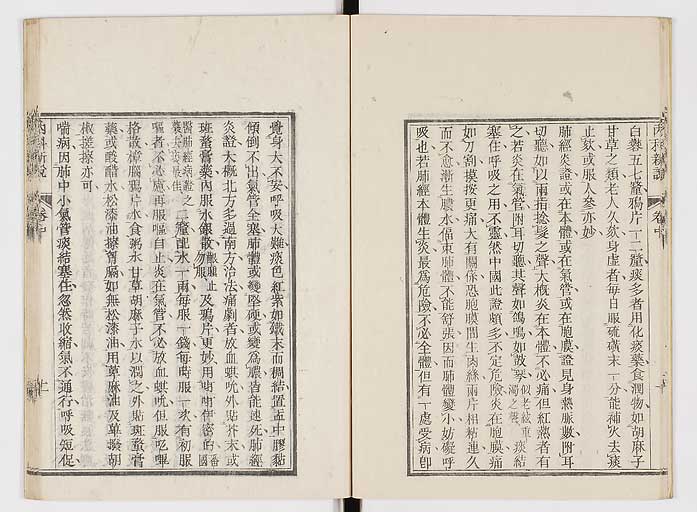 內科新說
卷中
白礬五七釐鴉片一二釐痰多者用化痰藥食潤物如胡麻子
甘草之類老人久欬身虛者每日服硫磺末一分能補火去痰
止欬或服人參亦妙
肺經炎證或在本體或在氣管或在胞膜證見身熱脈數附耳
切聽如以兩指捻髮之聲大概炎在本體不必痛但紅熱者有
之若炎在氣管附耳切聽其聲如鴿鳴如鼓琴似老絃重濁之聲痰結
塞住呼吸之用不靈然中國此證頗多不定危險炎在胞膜痛
如刀割摸按更痛大有關係恐胞膜間生肉絲兩片相粘連久
而不愈漸生膿水偪束肺體不能舒張因而肺體變小妨礙呼
吸也若肺經本體生炎最為危險不必全體但有一處受病即
覺身大不安呼吸大難痰色紅紫如鐵末而稠結置盂中膠黏
傾倒不出氣管全塞肺體或變堅硬或變為膿皆能速死肺經
炎證大概北方多過南方治法痛劇者放血蜞吮外貼芥末或
斑蝥膏藥內服水銀散勿服及鴉片更妙用
二釐配水一兩每服一錢每時服一次有初服
嘔者不必慮再服嘔自止炎在氣管不必放血蜞吮但服吃嗶
格散樟腦鴉片水食粥水甘草胡麻子水以潤之外貼斑蝥膏
藥或酸醋水松漆油擦胷膈如無松漆油用草麻油及蓽撥胡
椒搓擦亦可
喘病因肺中小氣管痰結塞住忽然收縮氣不通行呼吸短促
內科新說
卷中